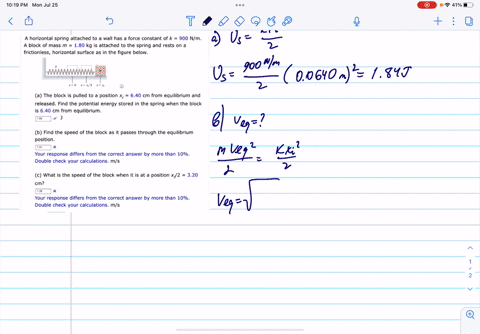 10:19 PM Mon Jul 25
41%
A horizontal spring attached to a wall has a force constant of k = 900 N/m.
A block of mass m = 1.80 kg is attached to the spring and rests on a
frictionless, horizontal surface as in the figure below.
(a) The block is pulled to a position xᵢ = 6.40 cm from equilibrium and
released. Find the potential energy stored in the spring when the block
is 6.40 cm from equilibrium.
J
(b) Find the speed of the block as it passes through the equilibrium
position.
Your response differs from the correct answer by more than 10%.
Double check your calculations. m/s
(c) What is the speed of the block when it is at a position xᵢ/2 = 3.20
cm?
Your response differs from the correct answer by more than 10%.
Double check your calculations. m/s
a) Us = kxᵢ²/2
Us = 900 N/m / 2 (0.0640 m)² = 1.84 J
b) Veq = ?
m Veq²/2 = k xᵢ²/2
Veq = √
1
2